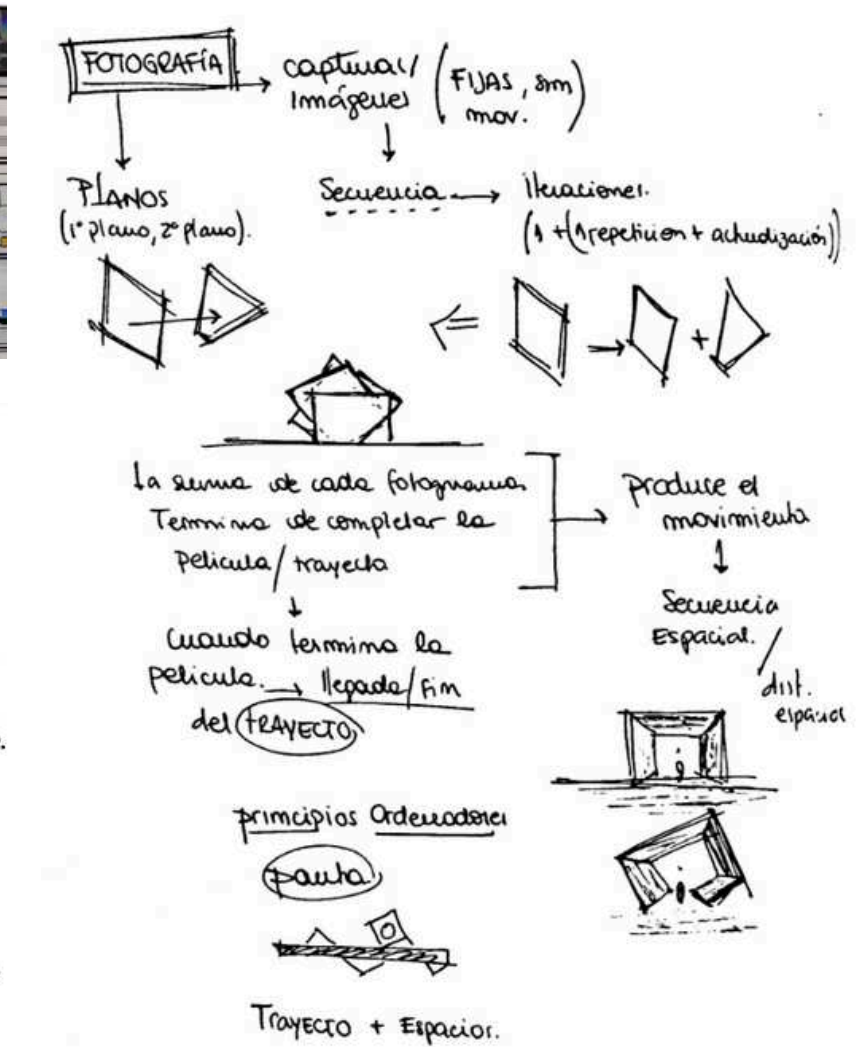 FOTOGRAFÍA
capturar/
imágenes
(FIJAS, sin
mov.)
PLANOS
(1° plano, 2° plano).
Secuencia
iteraciones.
(1 + (1 repeticion + actualización))
+
La suma de cada fotogramas
Termina de completar la
Película / trayecto
produce el
movimiento
Secuencia
Espacial.
dist.
espacial
Cuando termina la
película. llegada / Fin
del TRAYECTO
principios Ordenadores
pauta
Trayecto + Espacios.